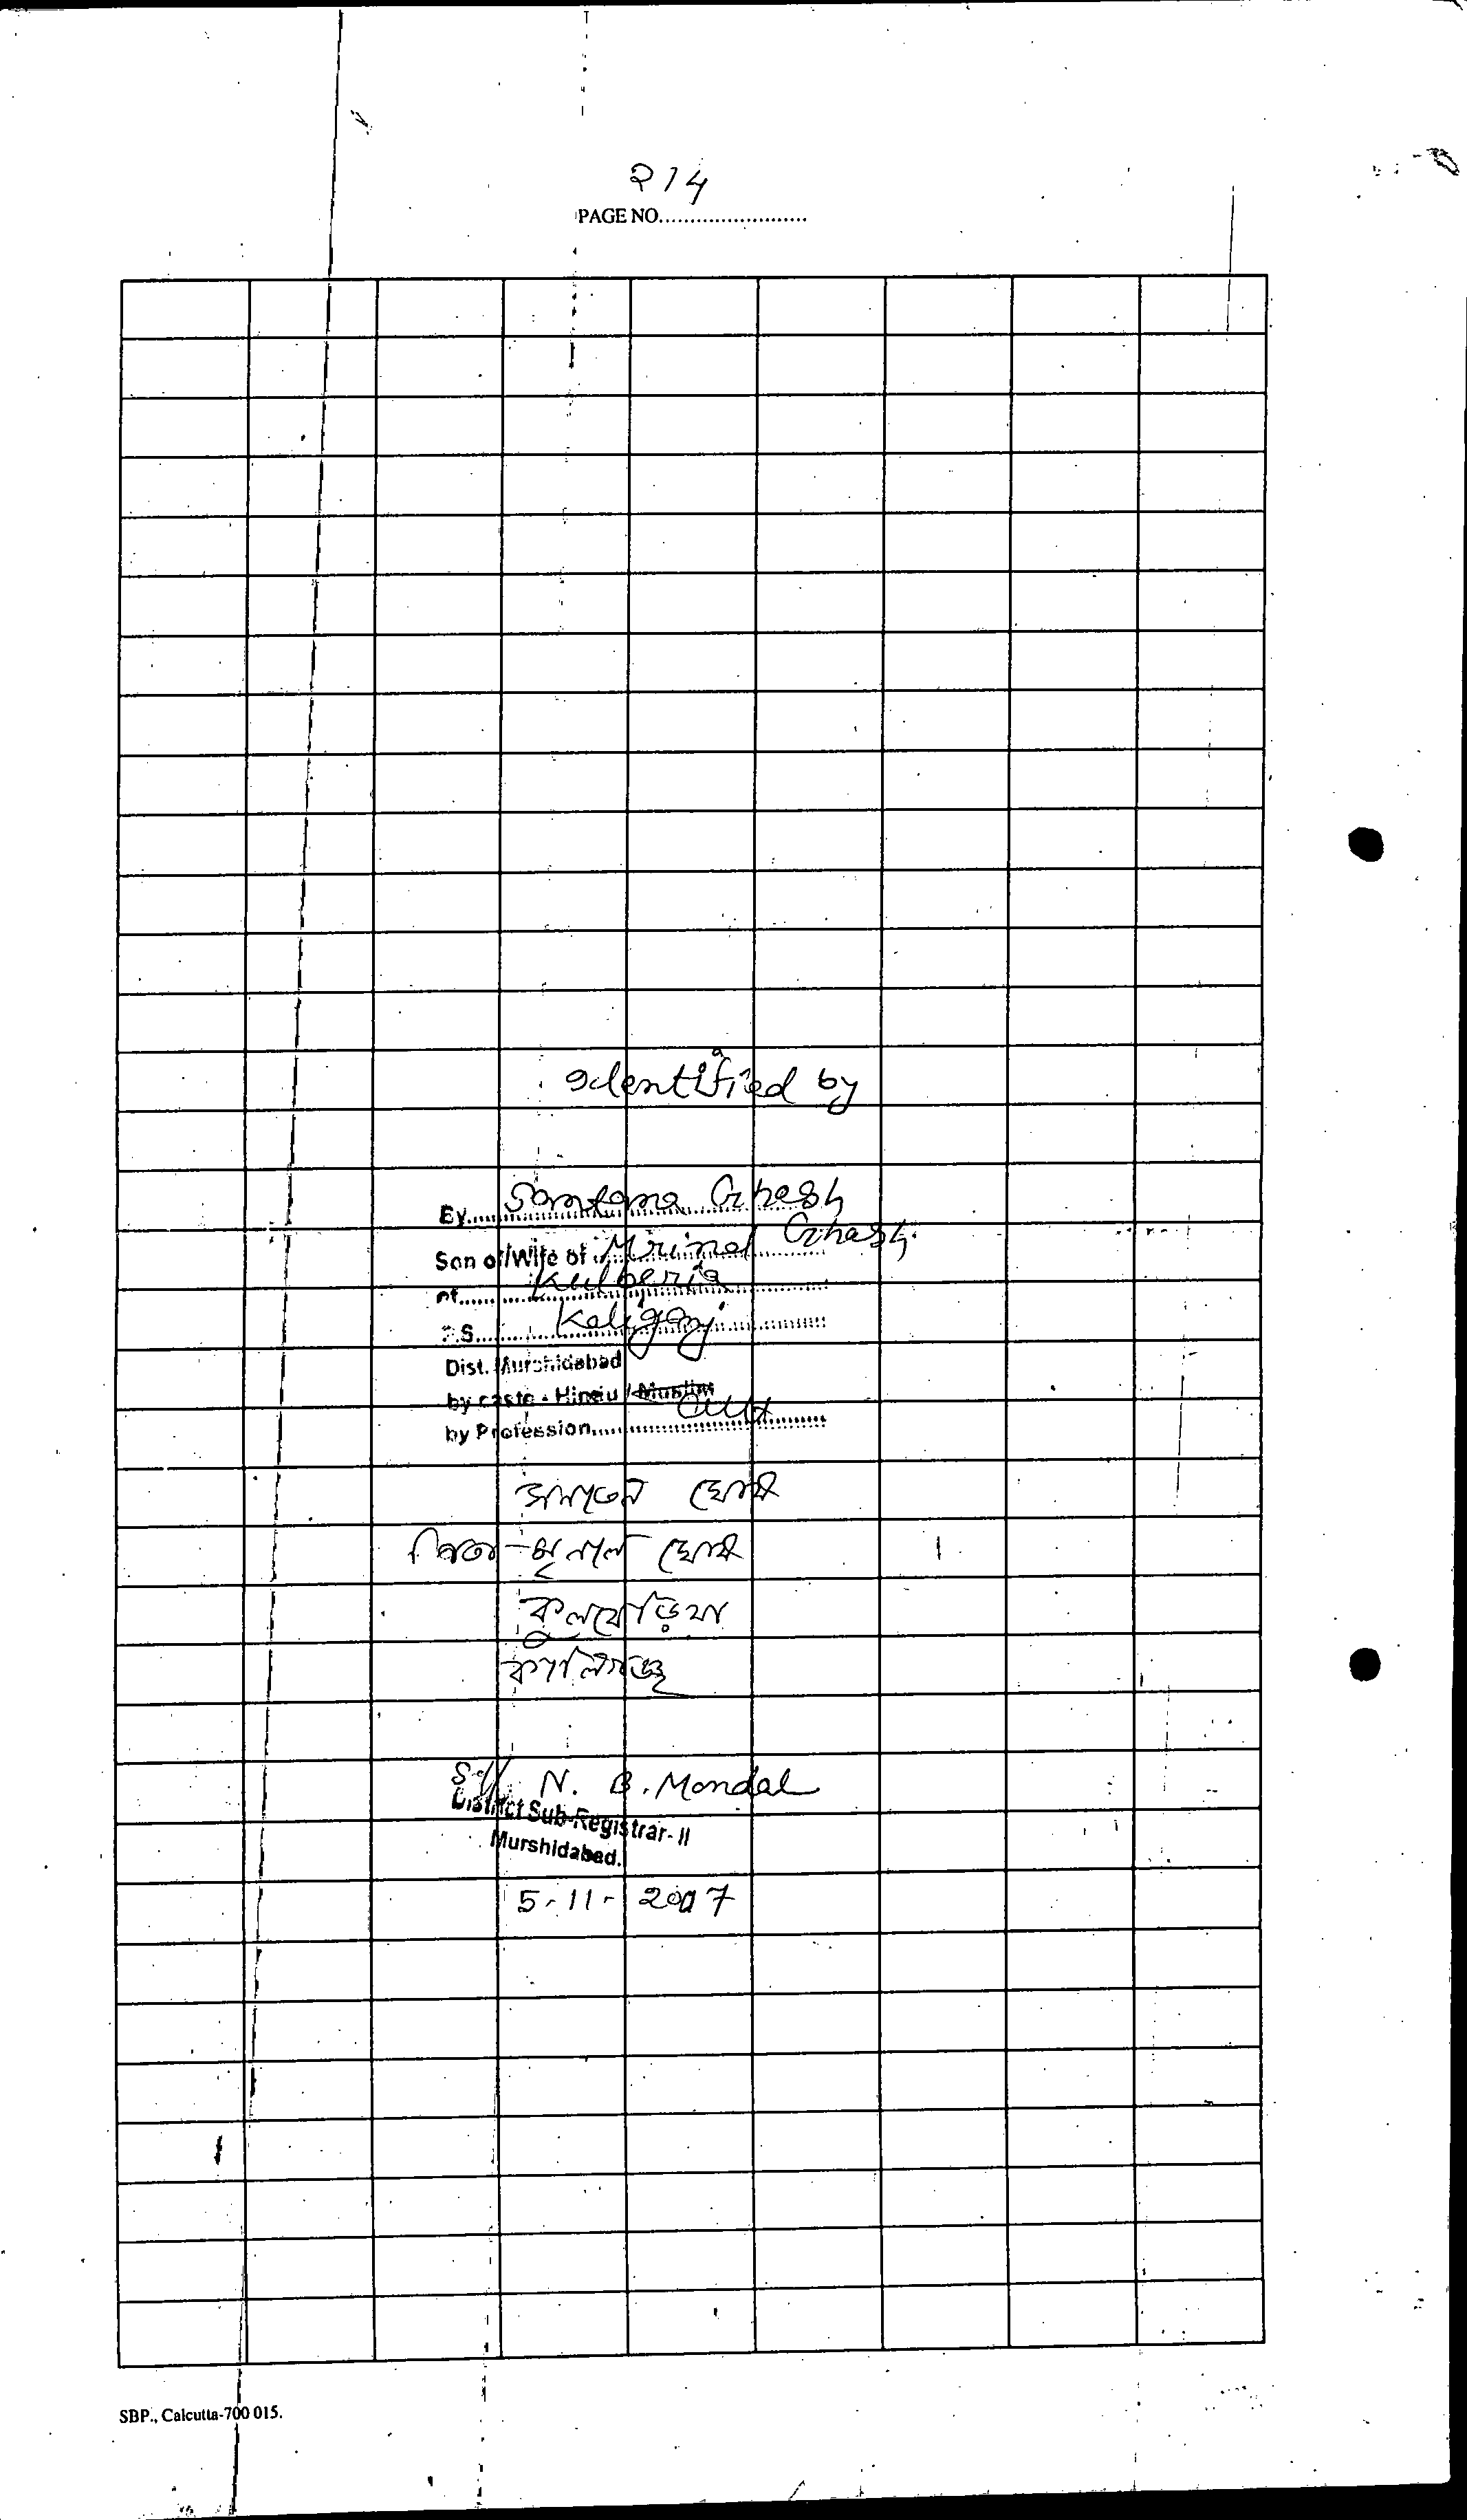 214
PAGE NO........................
Identified by
By..... Santana Ghosh
Son of/Wife of Mrinal Ghosh
of..... Kulberia
P.S..... Kaliganj
Dist. Murshidabad
by caste - Hindu / Muslim
by Profession.....
সনাতন ঘোষ
পিতা - মৃনাল ঘোষ
কুলবেড়িয়া
কালিগঞ্জ
Sd/ N. B. Mondal
District Sub-Registrar-II
Murshidabad.
5-11-2007
SBP., Calcutta-700 015.